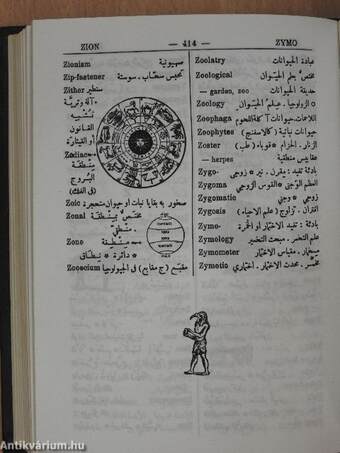 ZION — 414 — ZYMO
Zionism صهيونية
Zip-fastener
Zither سنطير
آلة وترية
تشبه
القانون
أو القيثارة
Zodiac
منطقة
البروج
(في الفلك)
Zoic صخور به بقايا نبات أو حيوان متحجرة
Zonal مختص بمنطقة
منطقي
Zone منطقة
دائرة • نطاق
Zooecium
Zoolatry عبادة الحيوانات
Zoological مختص بعلم الحيوان
— garden, zoo حديقة الحيوانات
Zoology الزولوجيا. علم الحيوان
Zoophaga
Zoophytes حيوانات نباتية (كالاسفنج)
Zoster الزنار. الحزام
— herpes
Zygo- بادئة تفيد: مقرن. نير. زوجي
Zygoma العظم الوجني • القوس الزوجي
Zygomatic زوجي • وجني
Zygosis اقتران. تزاوج (علم الاحياء)
Zymo- بادئة: تفيد الاختمار أو الخميرة
Zymology علم التخمر. مبحث التخمير
Zymometer مقياس الاختمار
Zymotic مخمر. محدث الاختمار. اختماري
Antikvárium.hu